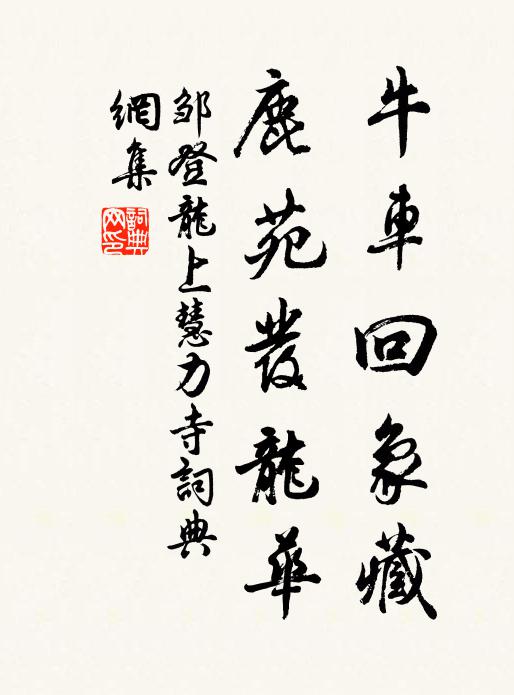 牛車回象藏
鹿苑發龍華
鄒登龍上慧力寺詞典
網集
詞典網印